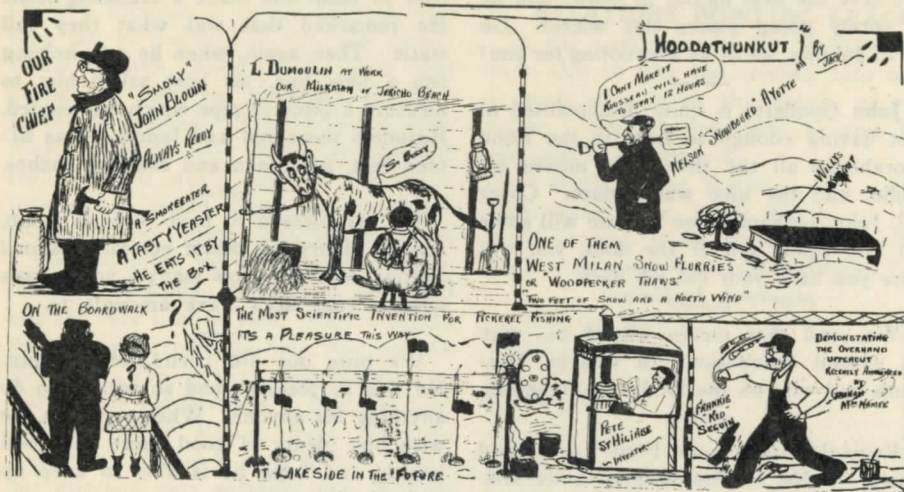 OUR
FIRE
CHIEF
"SMOKY"
JOHN BLOUIN
ALWAYS READY
A SMOKEEATER
A TASTY YEASTER
HE EATS IT BY
THE BOX
L DUMOULIN AT WORK
OUR MILKMAN OF JERICHO BEACH
SO BOSSY
HOODATHUNKUT
BY
JACK
I CANT MAKE IT
ROUSSEAU WILL HAVE
TO STAY 12 HOURS
NELSON "SNOWBOUND" AYOTTE
ONE OF THEM
WEST MILAN SNOW FLURRIES
OR WOODPECKER THAWS
TWO FEET OF SNOW AND A NORTH WIND
ON THE BOARDWALK
?
THE MOST SCIENTIFIC INVENTION FOR PICKEREL FISHING
IT'S A PLEASURE THIS WAY
PETE
ST HILIARE
INVENTOR
AT LAKESIDE IN THE FUTURE
FRANKIE
"KID"
SEGUIN
DEMONSTATING
THE OVERHAND
UPPERCUT
RECENTLY ANNOUNCED
BY
GRAHAM
MACNAMEE